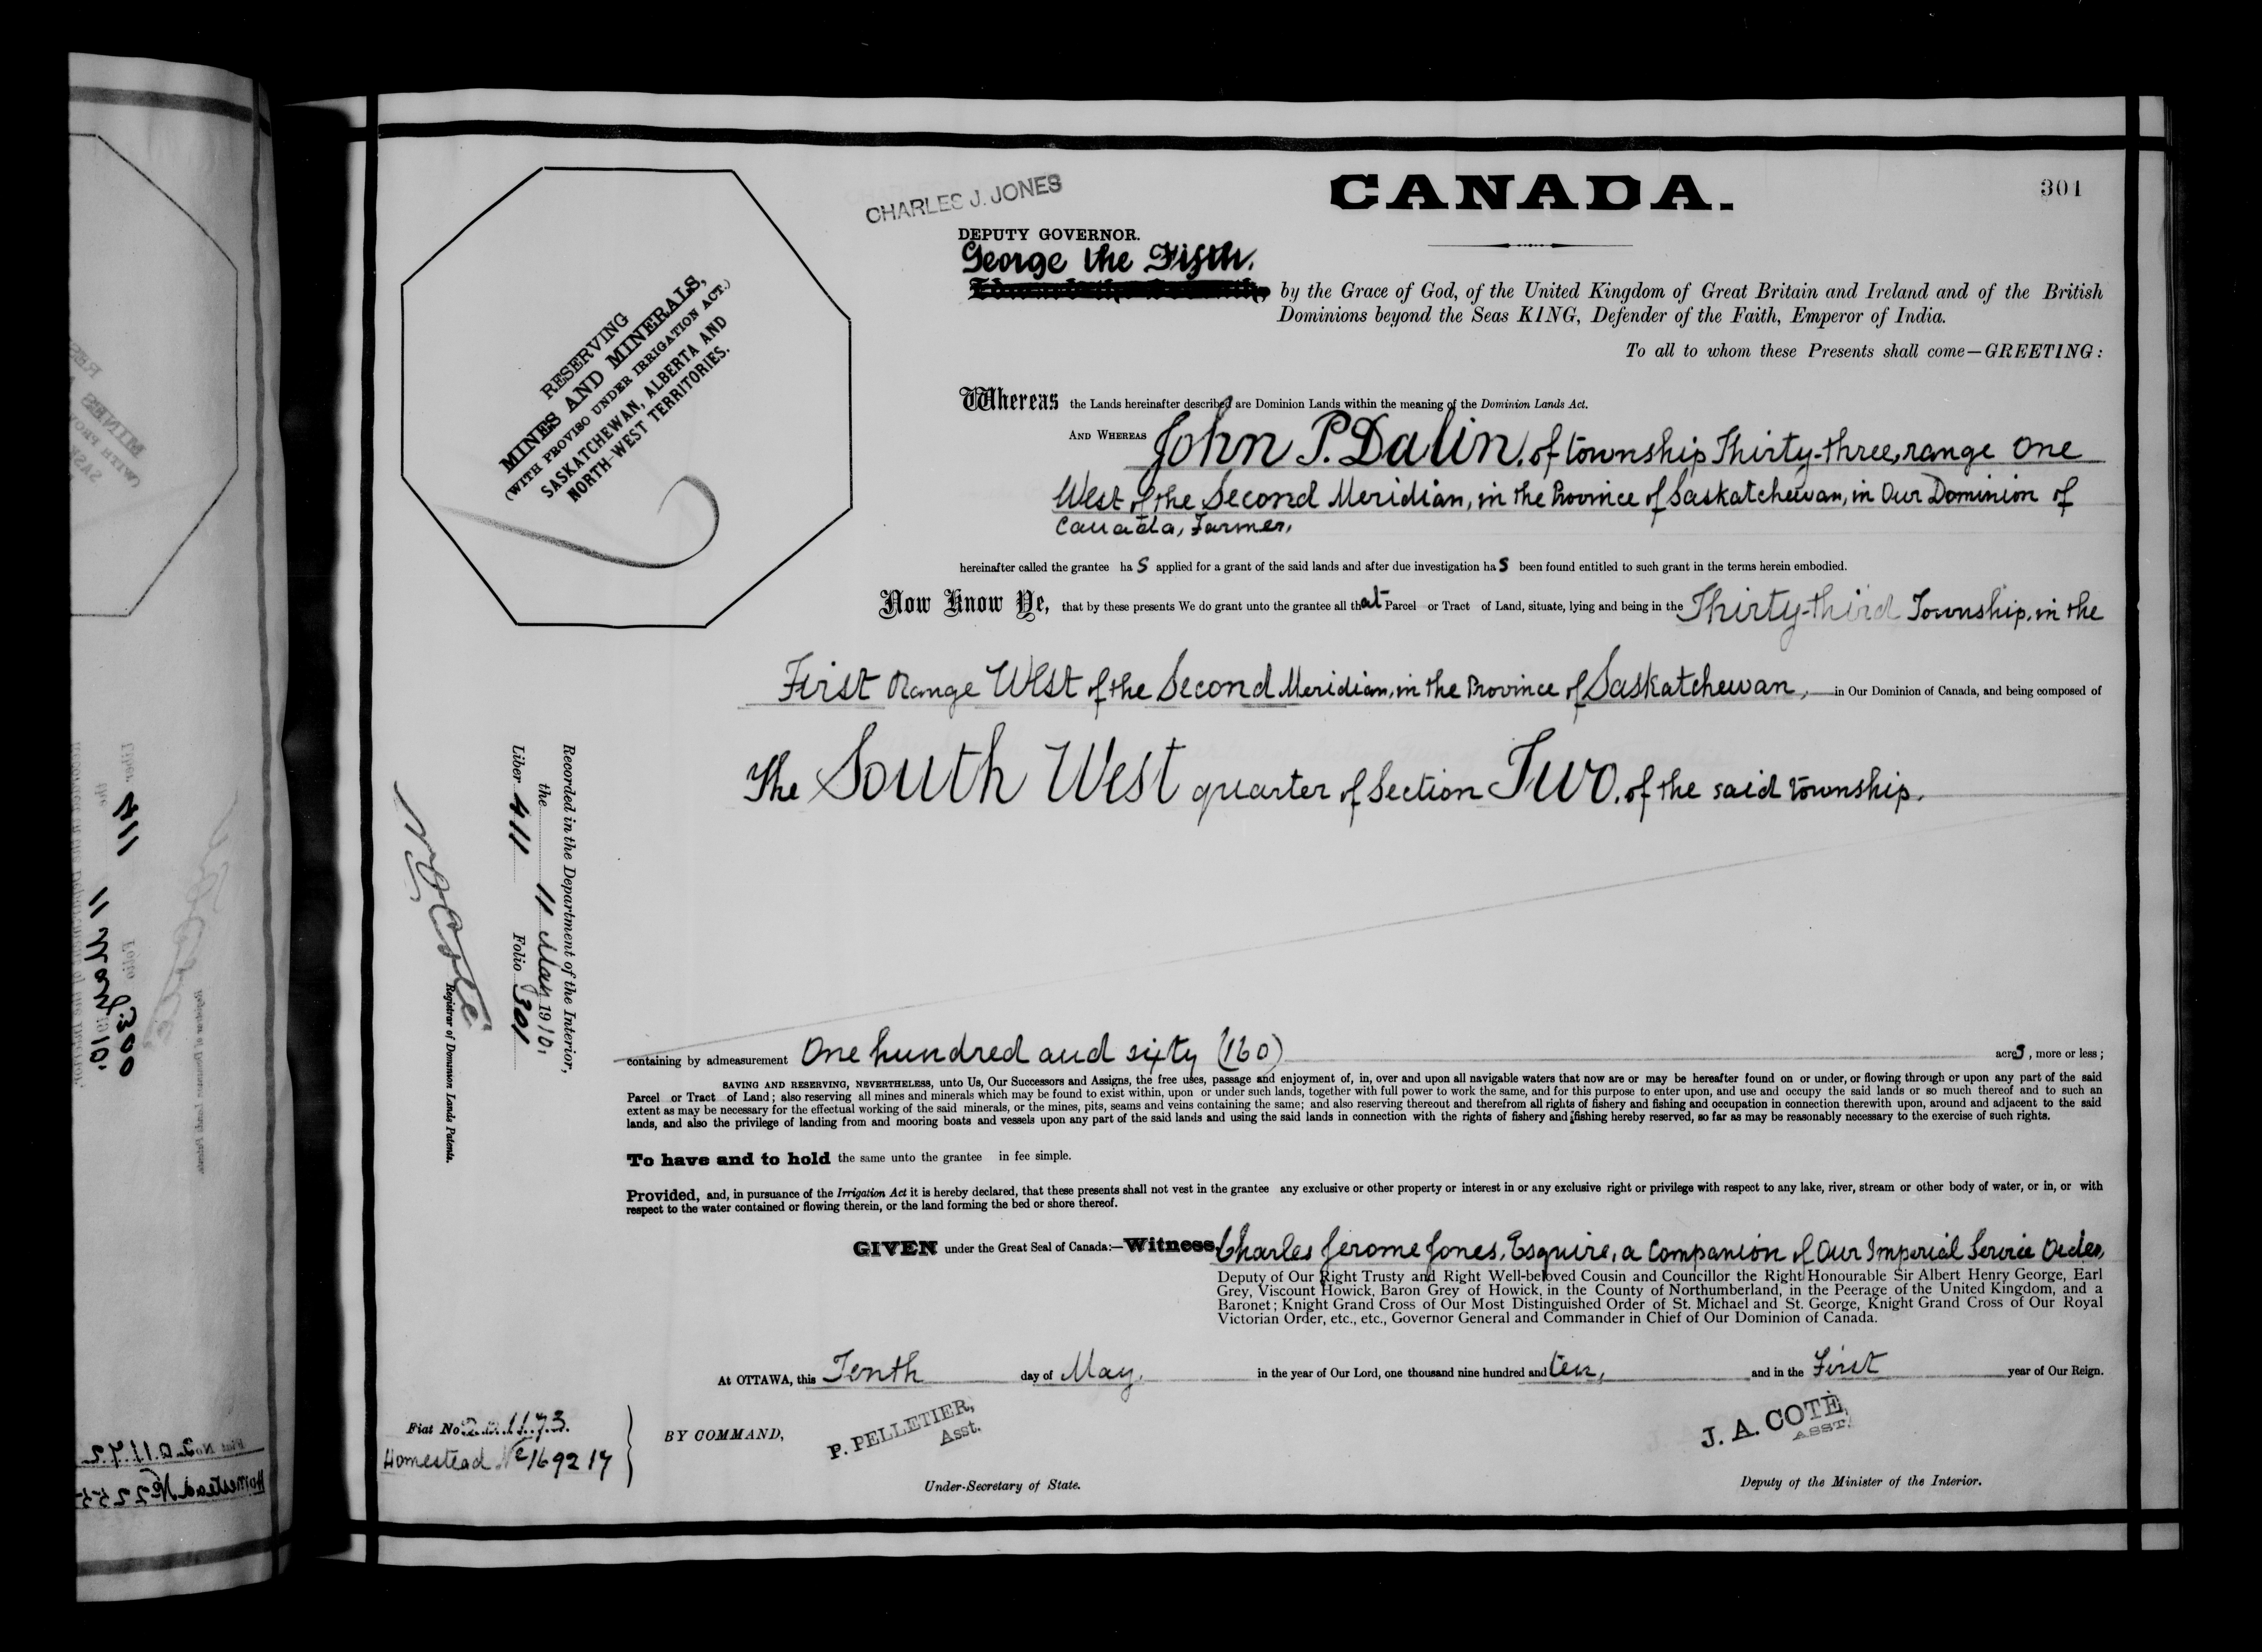 CANADA.
301
CHARLES J. JONES
DEPUTY GOVERNOR.
George the Fifth,
by the Grace of God, of the United Kingdom of Great Britain and Ireland and of the British
Dominions beyond the Seas KING, Defender of the Faith, Emperor of India.
To all to whom these Presents shall come—GREETING:
RESERVING
MINES AND MINERALS,
(WITH PROVISO UNDER IRRIGATION ACT.)
SASKATCHEWAN, ALBERTA AND
NORTH-WEST TERRITORIES.
Whereas the Lands hereinafter described are Dominion Lands within the meaning of the Dominion Lands Act.
AND WHEREAS John P. Dalin, of township Thirty-three, range One
West of the Second Meridian, in the Province of Saskatchewan, in Our Dominion of
Canada, Farmer,
hereinafter called the grantee has applied for a grant of the said lands and after due investigation has been found entitled to such grant in the terms herein embodied.
Now Know Ye, that by these presents We do grant unto the grantee all that Parcel or Tract of Land, situate, lying and being in the Thirty-third Township, in the
First Range West of the Second Meridian, in the Province of Saskatchewan, in Our Dominion of Canada, and being composed of
The South West quarter of Section Two, of the said township.
Recorded in the Department of the Interior,
the 11 May 1910,
Liber 411 Folio 301
Registrar of Dominion Lands Patents.
containing by admeasurement One hundred and sixty (160) acres, more or less;
SAVING AND RESERVING, NEVERTHELESS, unto Us, Our Successors and Assigns, the free uses, passage and enjoyment of, in, over and upon all navigable waters that now are or may be hereafter found on or under, or flowing through or upon any part of the said
Parcel or Tract of Land; also reserving all mines and minerals which may be found to exist within, upon or under such lands, together with full power to work the same, and for this purpose to enter upon, and use and occupy the said lands or so much thereof and to such an
extent as may be necessary for the effectual working of the said minerals, or the mines, pits, seams and veins containing the same; and also reserving thereout and therefrom all rights of fishery and fishing and occupation in connection therewith upon, around and adjacent to the said
lands, and also the privilege of landing from and mooring boats and vessels upon any part of the said lands and using the said lands in connection with the rights of fishery and fishing hereby reserved, so far as may be reasonably necessary to the exercise of such rights.
To have and to hold the same unto the grantee in fee simple.
Provided, and, in pursuance of the Irrigation Act it is hereby declared, that these presents shall not vest in the grantee any exclusive or other property or interest in or any exclusive right or privilege with respect to any lake, river, stream or other body of water, or in, or with
respect to the water contained or flowing therein, or the land forming the bed or shore thereof.
GIVEN under the Great Seal of Canada:—Witness, Charles Jerome Jones, Esquire, a Companion of Our Imperial Service Order,
Deputy of Our Right Trusty and Right Well-beloved Cousin and Councillor the Right Honourable Sir Albert Henry George, Earl
Grey, Viscount Howick, Baron Grey of Howick, in the County of Northumberland, in the Peerage of the United Kingdom, and a
Baronet; Knight Grand Cross of Our Most Distinguished Order of St. Michael and St. George, Knight Grand Cross of Our Royal
Victorian Order, etc., etc., Governor General and Commander in Chief of Our Dominion of Canada.
At OTTAWA, this Tenth day of May, in the year of Our Lord, one thousand nine hundred and ten, and in the First year of Our Reign.
Fiat No 20.1173.
Homestead No 169217
BY COMMAND,
P. PELLETIER,
Asst.
Under-Secretary of State.
J. A. COTÉ,
ASST.
Deputy of the Minister of the Interior.